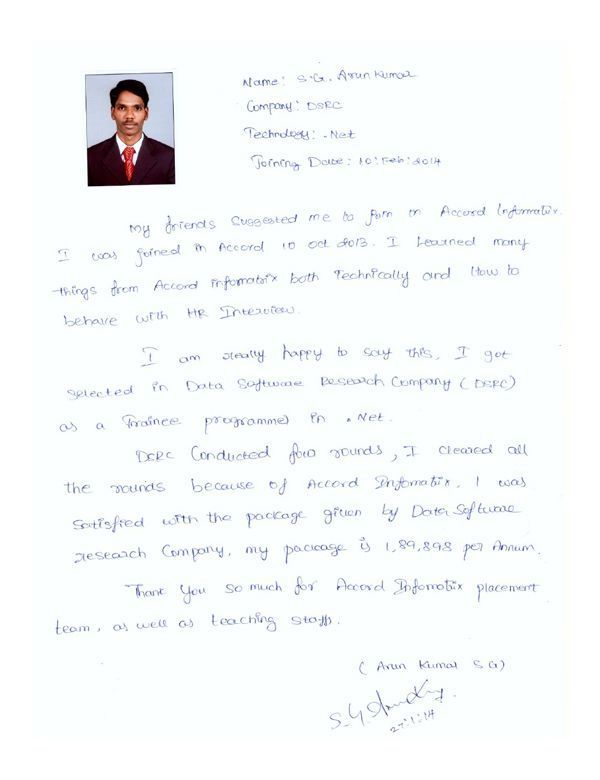 Name: S.G. Arun Kumar
Company: DSRC
Technology: .Net
Joining Date: 10:Feb:2014
My friends Suggested me to Join in Accord Informatix.
I was joined in Accord 10 oct 2013. I Learned many
things from Accord infomatrix both Technically and How to
behave with HR Interview.
I am really happy to say this, I got
selected in Data Software Research Company (DSRC)
as a Trainee programmer in .Net.
DSRC Conducted four rounds, I cleared all
the rounds because of Accord Infomatix. I was
satisfied with the package given by Data Software
research Company, my package is 1,89,898 per Annum.
Thank You so much for Accord Infomatix placement
team, as well as teaching staffs.
(Arun Kumar S G)
S.G. Arun
27:1:14